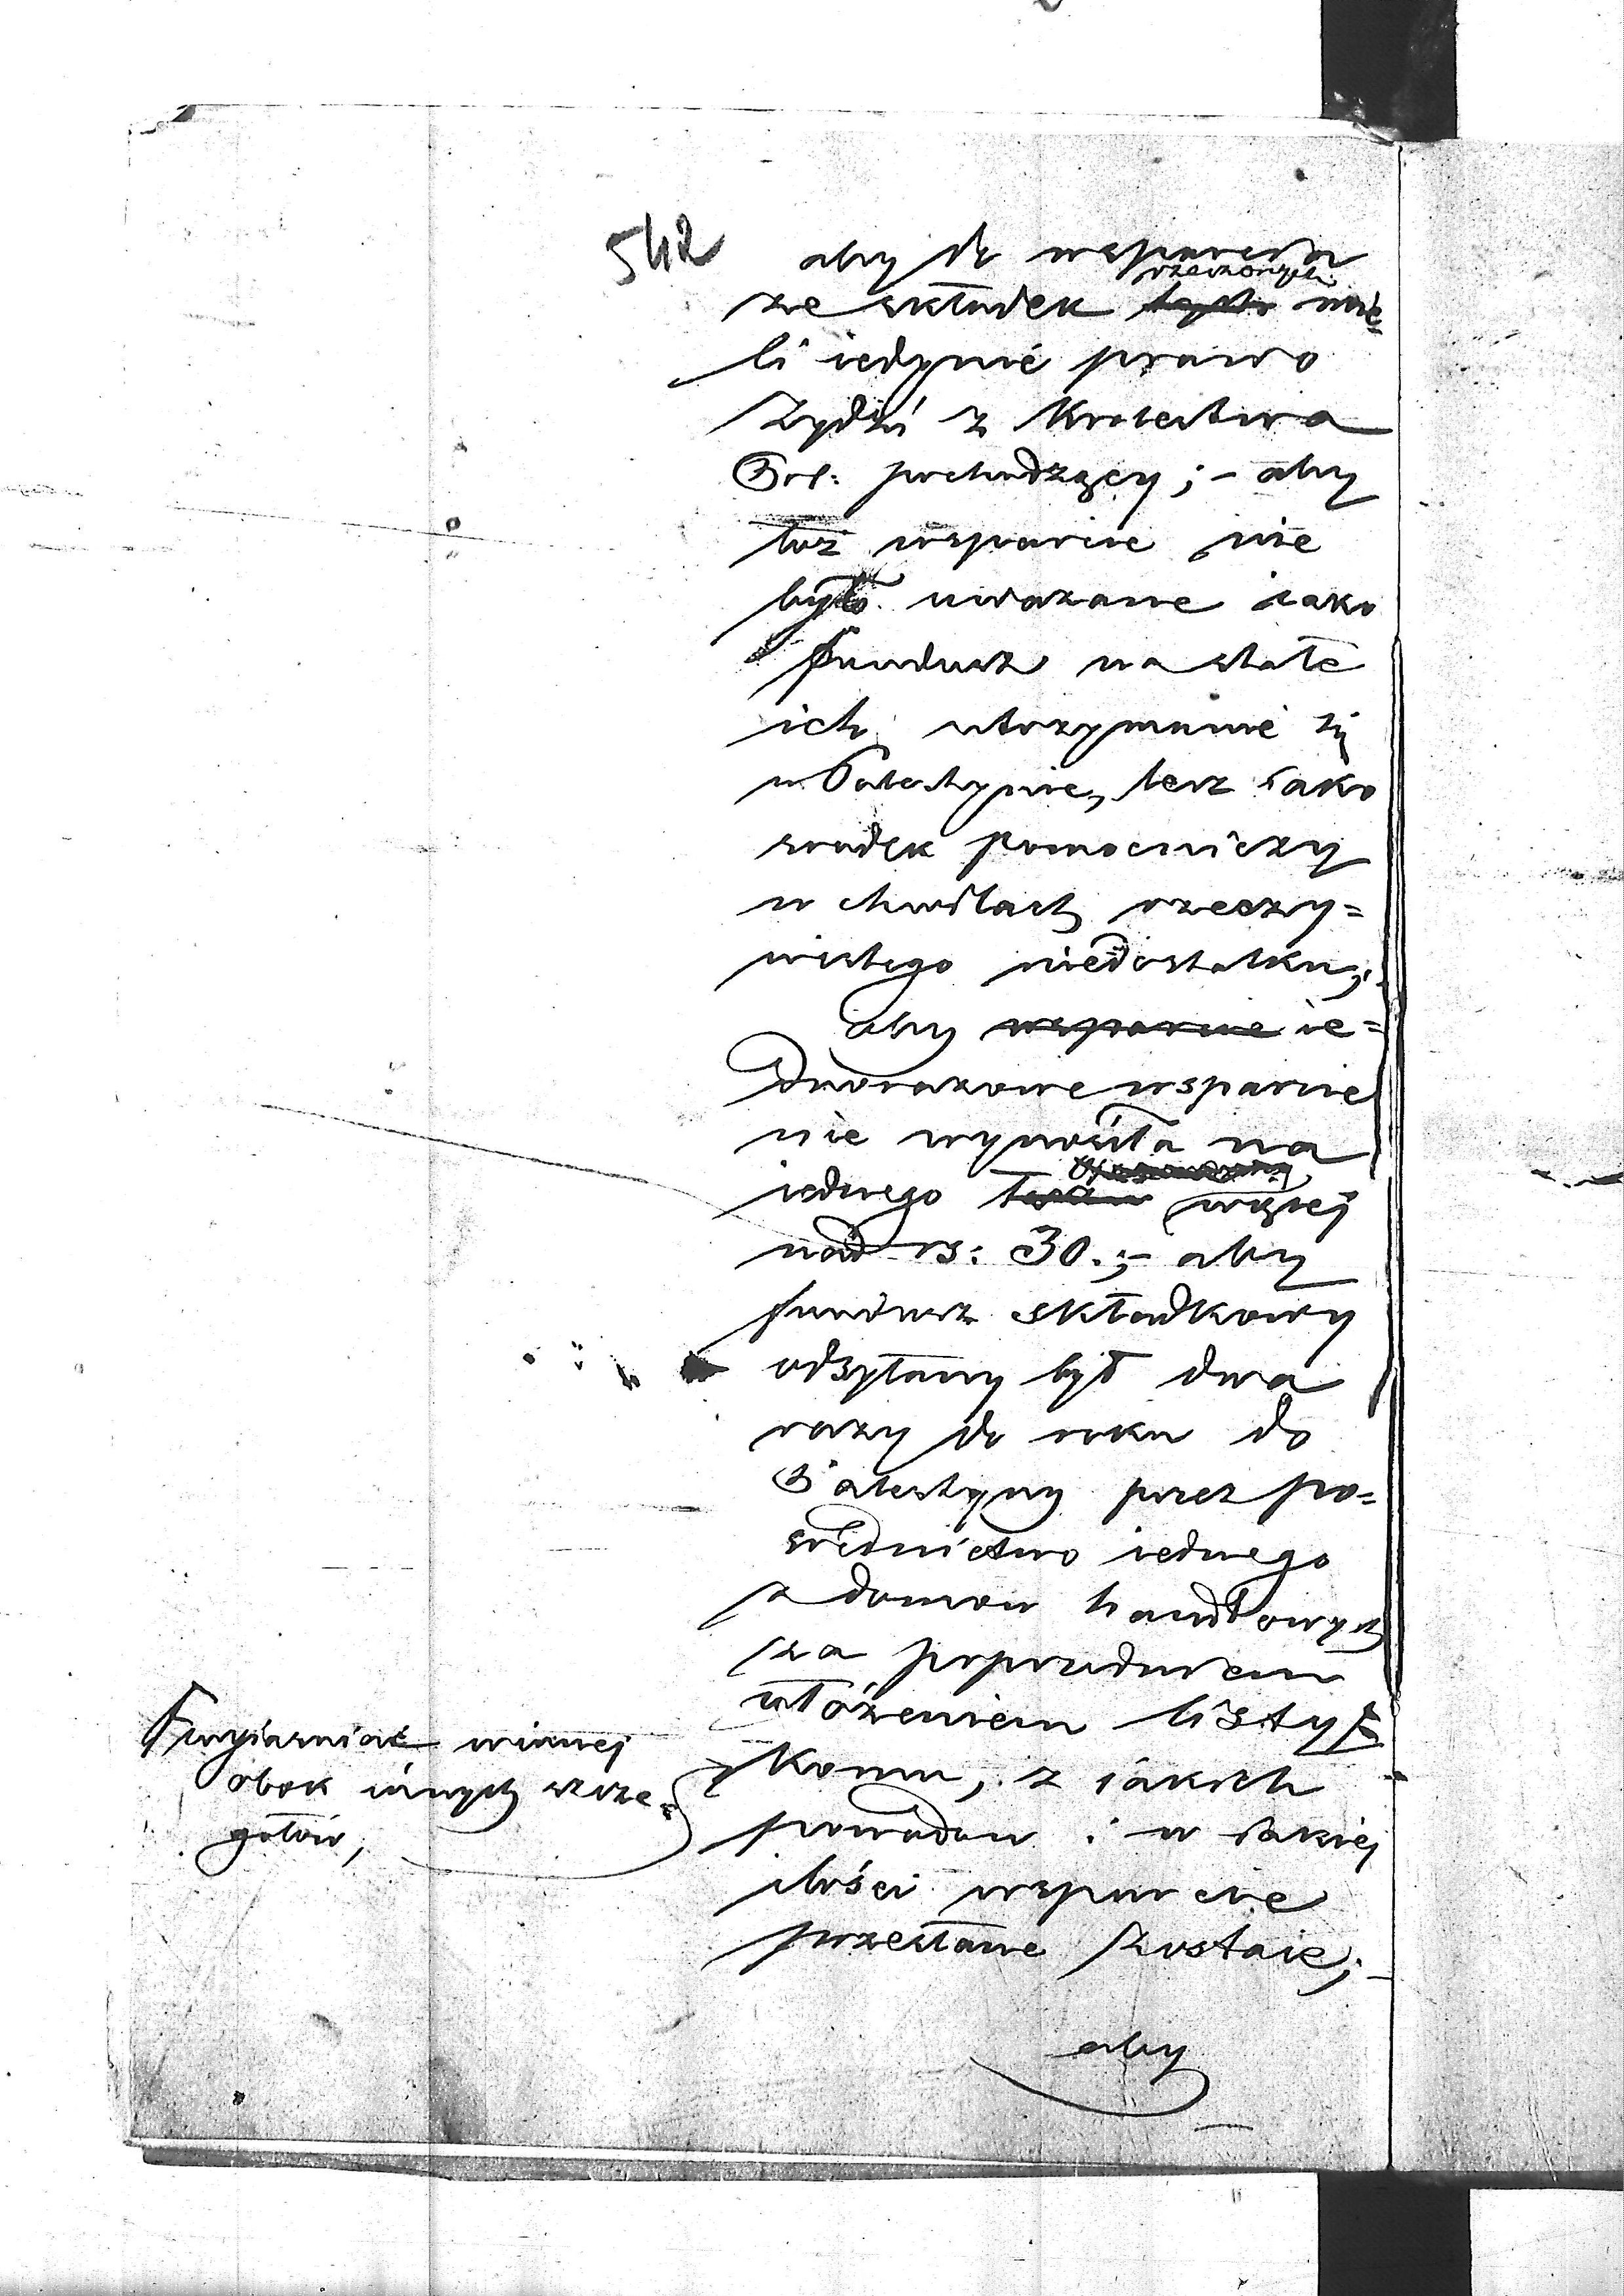 542
aby do wsparcia
rzeczonych
ze składek tych mie=
li iedynie prawo
Żydzi z Krolestwa
Pol: pochodzący; - aby
toż wsparcie nie
było uważane iako
fundusz na stałe
ich utrzymanie się
w Palestynie, lecz iako
srodek pomocniczy
w chwilach rzeczy=
wistego niedostatku;
aby wsparcie ie=
dnorazowe wsparcie
nie wynosiła na
iednego więcej
nad rs: 30.; - aby
fundusz składkowy
odsyłany był dwa
razy do roku do
Palestyny przez po=
srednictwo iednego
z domow handlowych
za poprzedniem
ułożeniem listy F
komu, z iakich
powodow i w iakiej
ilości wsparcie
przesłane zostaie; -
aby
F wyiasniać winnej
obok innych szcze=
gołow,